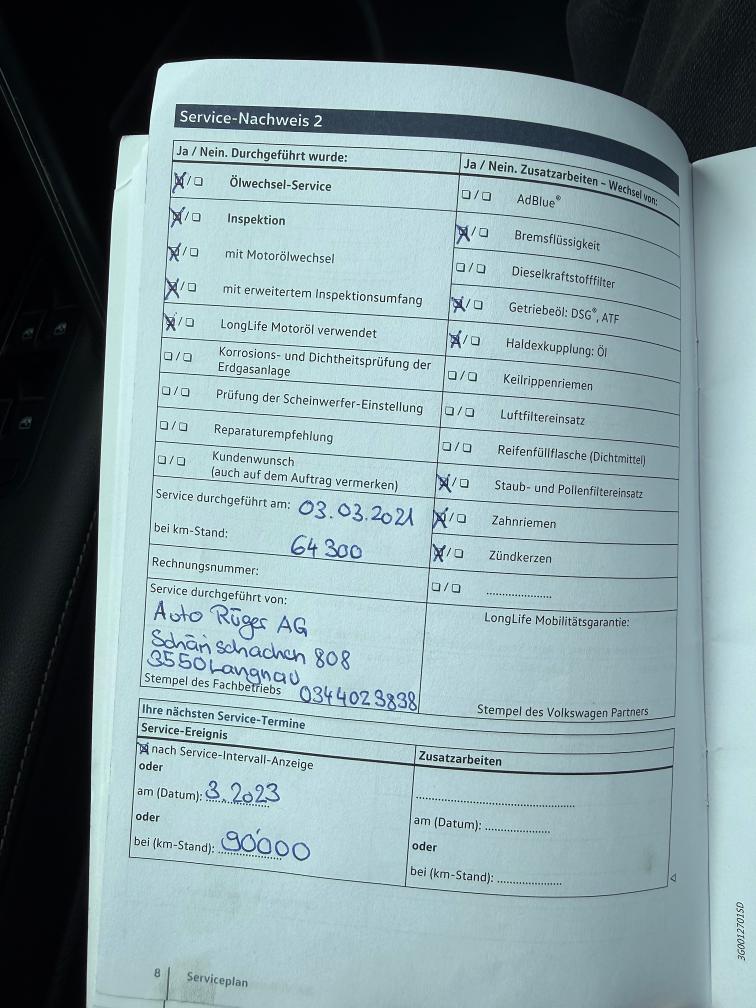 Service-Nachweis 2
Ja / Nein. Durchgeführt wurde:
☒/☐ Ölwechsel-Service
☒/☐ Inspektion
☒/☐ mit Motorölwechsel
☒/☐ mit erweitertem Inspektionsumfang
☒/☐ LongLife Motoröl verwendet
☐/☐ Korrosions- und Dichtheitsprüfung der
Erdgasanlage
☐/☐ Prüfung der Scheinwerfer-Einstellung
☐/☐ Reparaturempfehlung
☐/☐ Kundenwunsch
(auch auf dem Auftrag vermerken)
Service durchgeführt am: 03.03.2021
bei km-Stand: 64300
Rechnungsnummer:
Service durchgeführt von:
Auto Rüger AG
808
3550 Langnau
Stempel des Fachbetriebs 0344023838
Ja / Nein. Zusatzarbeiten – Wechsel von:
☐/☐ AdBlue®
☒/☐ Bremsflüssigkeit
☐/☐ Dieselkraftstofffilter
☒/☐ Getriebeöl: DSG®, ATF
☒/☐ Haldexkupplung: Öl
☐/☐ Keilrippenriemen
☐/☐ Luftfiltereinsatz
☐/☐ Reifenfüllflasche (Dichtmittel)
☒/☐ Staub- und Pollenfiltereinsatz
☒/☐ Zahnriemen
☒/☐ Zündkerzen
☐/☐ ....................
LongLife Mobilitätsgarantie:
Stempel des Volkswagen Partners
Ihre nächsten Service-Termine
Service-Ereignis
☒ nach Service-Intervall-Anzeige
oder
am (Datum): 3.2023
oder
bei (km-Stand): 90'000
Zusatzarbeiten
..................................................
am (Datum): ....................
oder
bei (km-Stand): ....................
8 Serviceplan
3G0012701SD